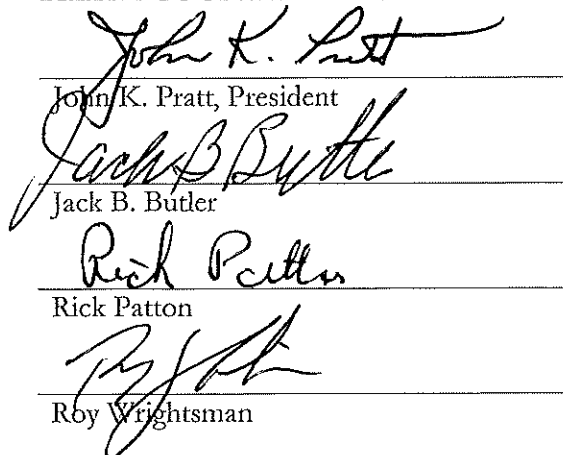 John K. Pratt
John K. Pratt, President
Jack B Butler
Jack B. Butler
Rick Patton
Rick Patton
Roy Wrightsman